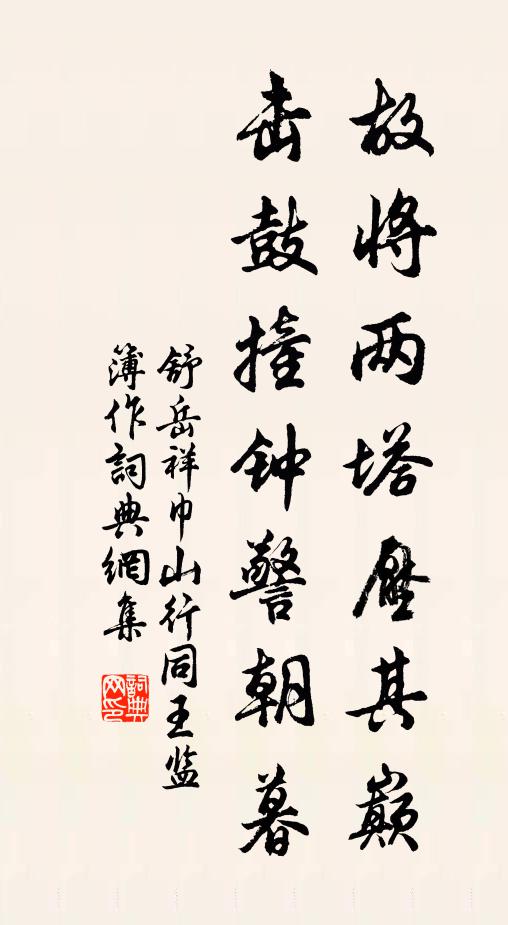 故将两塔压其巅
击鼓撞钟警朝暮
舒岳祥巾山行同王监
簿作詞典網集
詞典网印